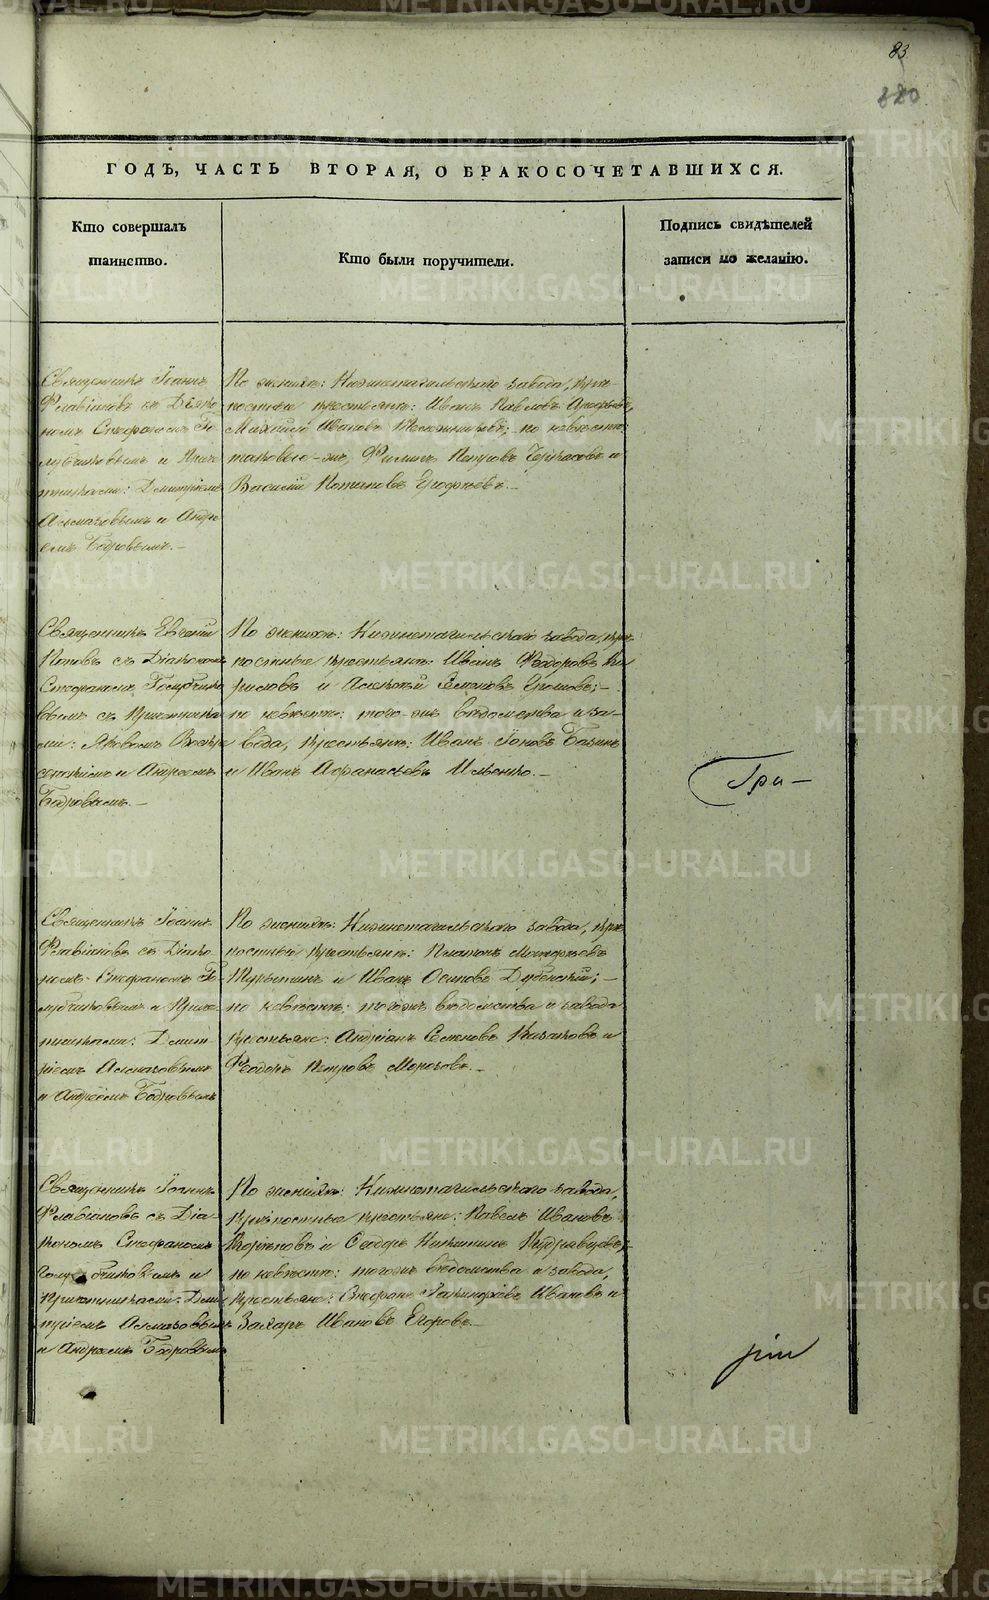 83
380
ГОДЪ, ЧАСТЬ ВТОРАЯ, О БРАКОСОЧЕТАВШИХСЯ.
Кто совершалъ
таинство.
Кто были поручители.
Подпись свидѣтелей
записи по желанію.
Священникъ Іоаннъ
Флавіановъ съ Діако-
номъ Стефаномъ Го-
лубчиковымъ и Приче-
тниками: Дмитріемъ
Алмазовымъ и Андре-
емъ Бодровымъ.-
По женихѣ: Нижнетагильскаго завода, крѣ-
постные крестьяне: Иванъ Павловъ
Михайло Ивановъ по невѣстѣ:
таковые-жъ, Филипъ Петровъ Черкасовъ и
Василій Потаповъ Ерофѣевъ.-
Священникъ Евгеній
Поповъ съ Діакономъ
Стефаномъ Голубчико-
вымъ съ Причетника-
ми: Яковомъ Воскре-
сенскимъ и Андреемъ
Бодровымъ.-
По женихѣ: Нижнетагильскаго завода, крѣ-
постные крестьяне: Иванъ Федоровъ Ки-
риловъ и Алексѣй Семеновъ
по невѣстѣ: того-жъ вѣдомства и за-
вода, крестьяне: Иванъ Іоновъ
и Иванъ Афанасьевъ
Гри-
Священникъ Іоаннъ
Флавіановъ съ Діако-
номъ Стефаномъ Го-
лубчиковымъ и Приче-
тниками: Дмит-
ріемъ Алмазовымъ
и Андреемъ Бодровымъ
По женихѣ: Нижнетагильскаго завода, крѣ-
постные крестьяне: Платонъ
и Иванъ Осиповъ Дубенскій;-
по невѣстѣ: тогожъ вѣдомства и завода
крестьяне: Андріанъ Семеновъ Казаковъ и
Феодоръ Петровъ Морозовъ.-
Священникъ Іоаннъ
Флавіановъ съ Діа-
кономъ Стефаномъ
Голубчиковымъ и
Причетниками: Дми-
тріемъ Алмазовымъ
и Андреемъ Бодровымъ
По женихѣ: Нижнетагильскаго завода,
крѣпостные крестьяне: Павелъ Ивановъ
и Феодоръ Никитинъ Кудрявцевъ;
по невѣстѣ: тогожъ вѣдомства и завода,
крестьяне: Ивановъ и
Захаръ Ивановъ Егоровъ.-
рій
METRIKI.GASO-URAL.RU